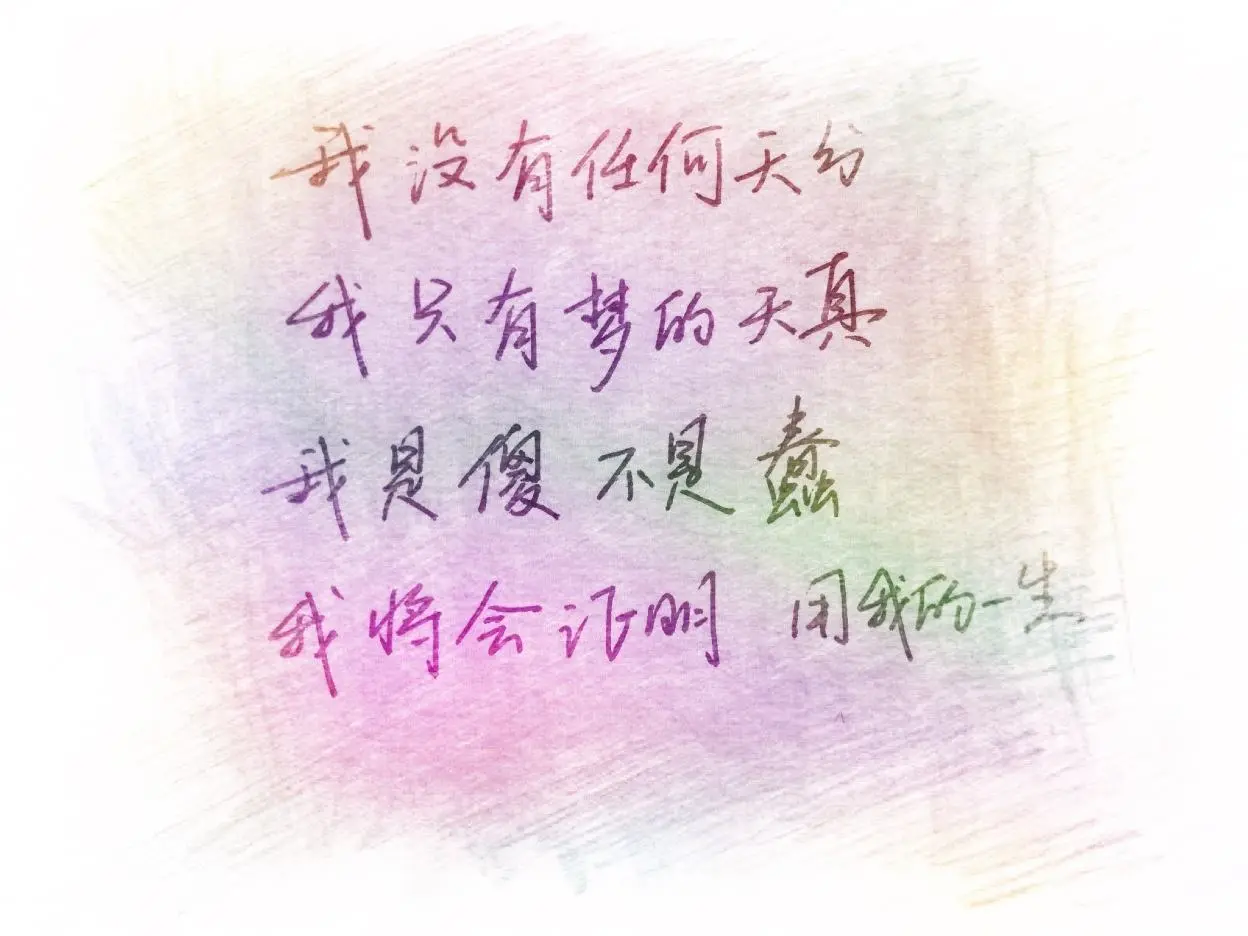 我没有任何天分
我只有梦的天真
我是傻 不是蠢
我将会证明 用我的一生